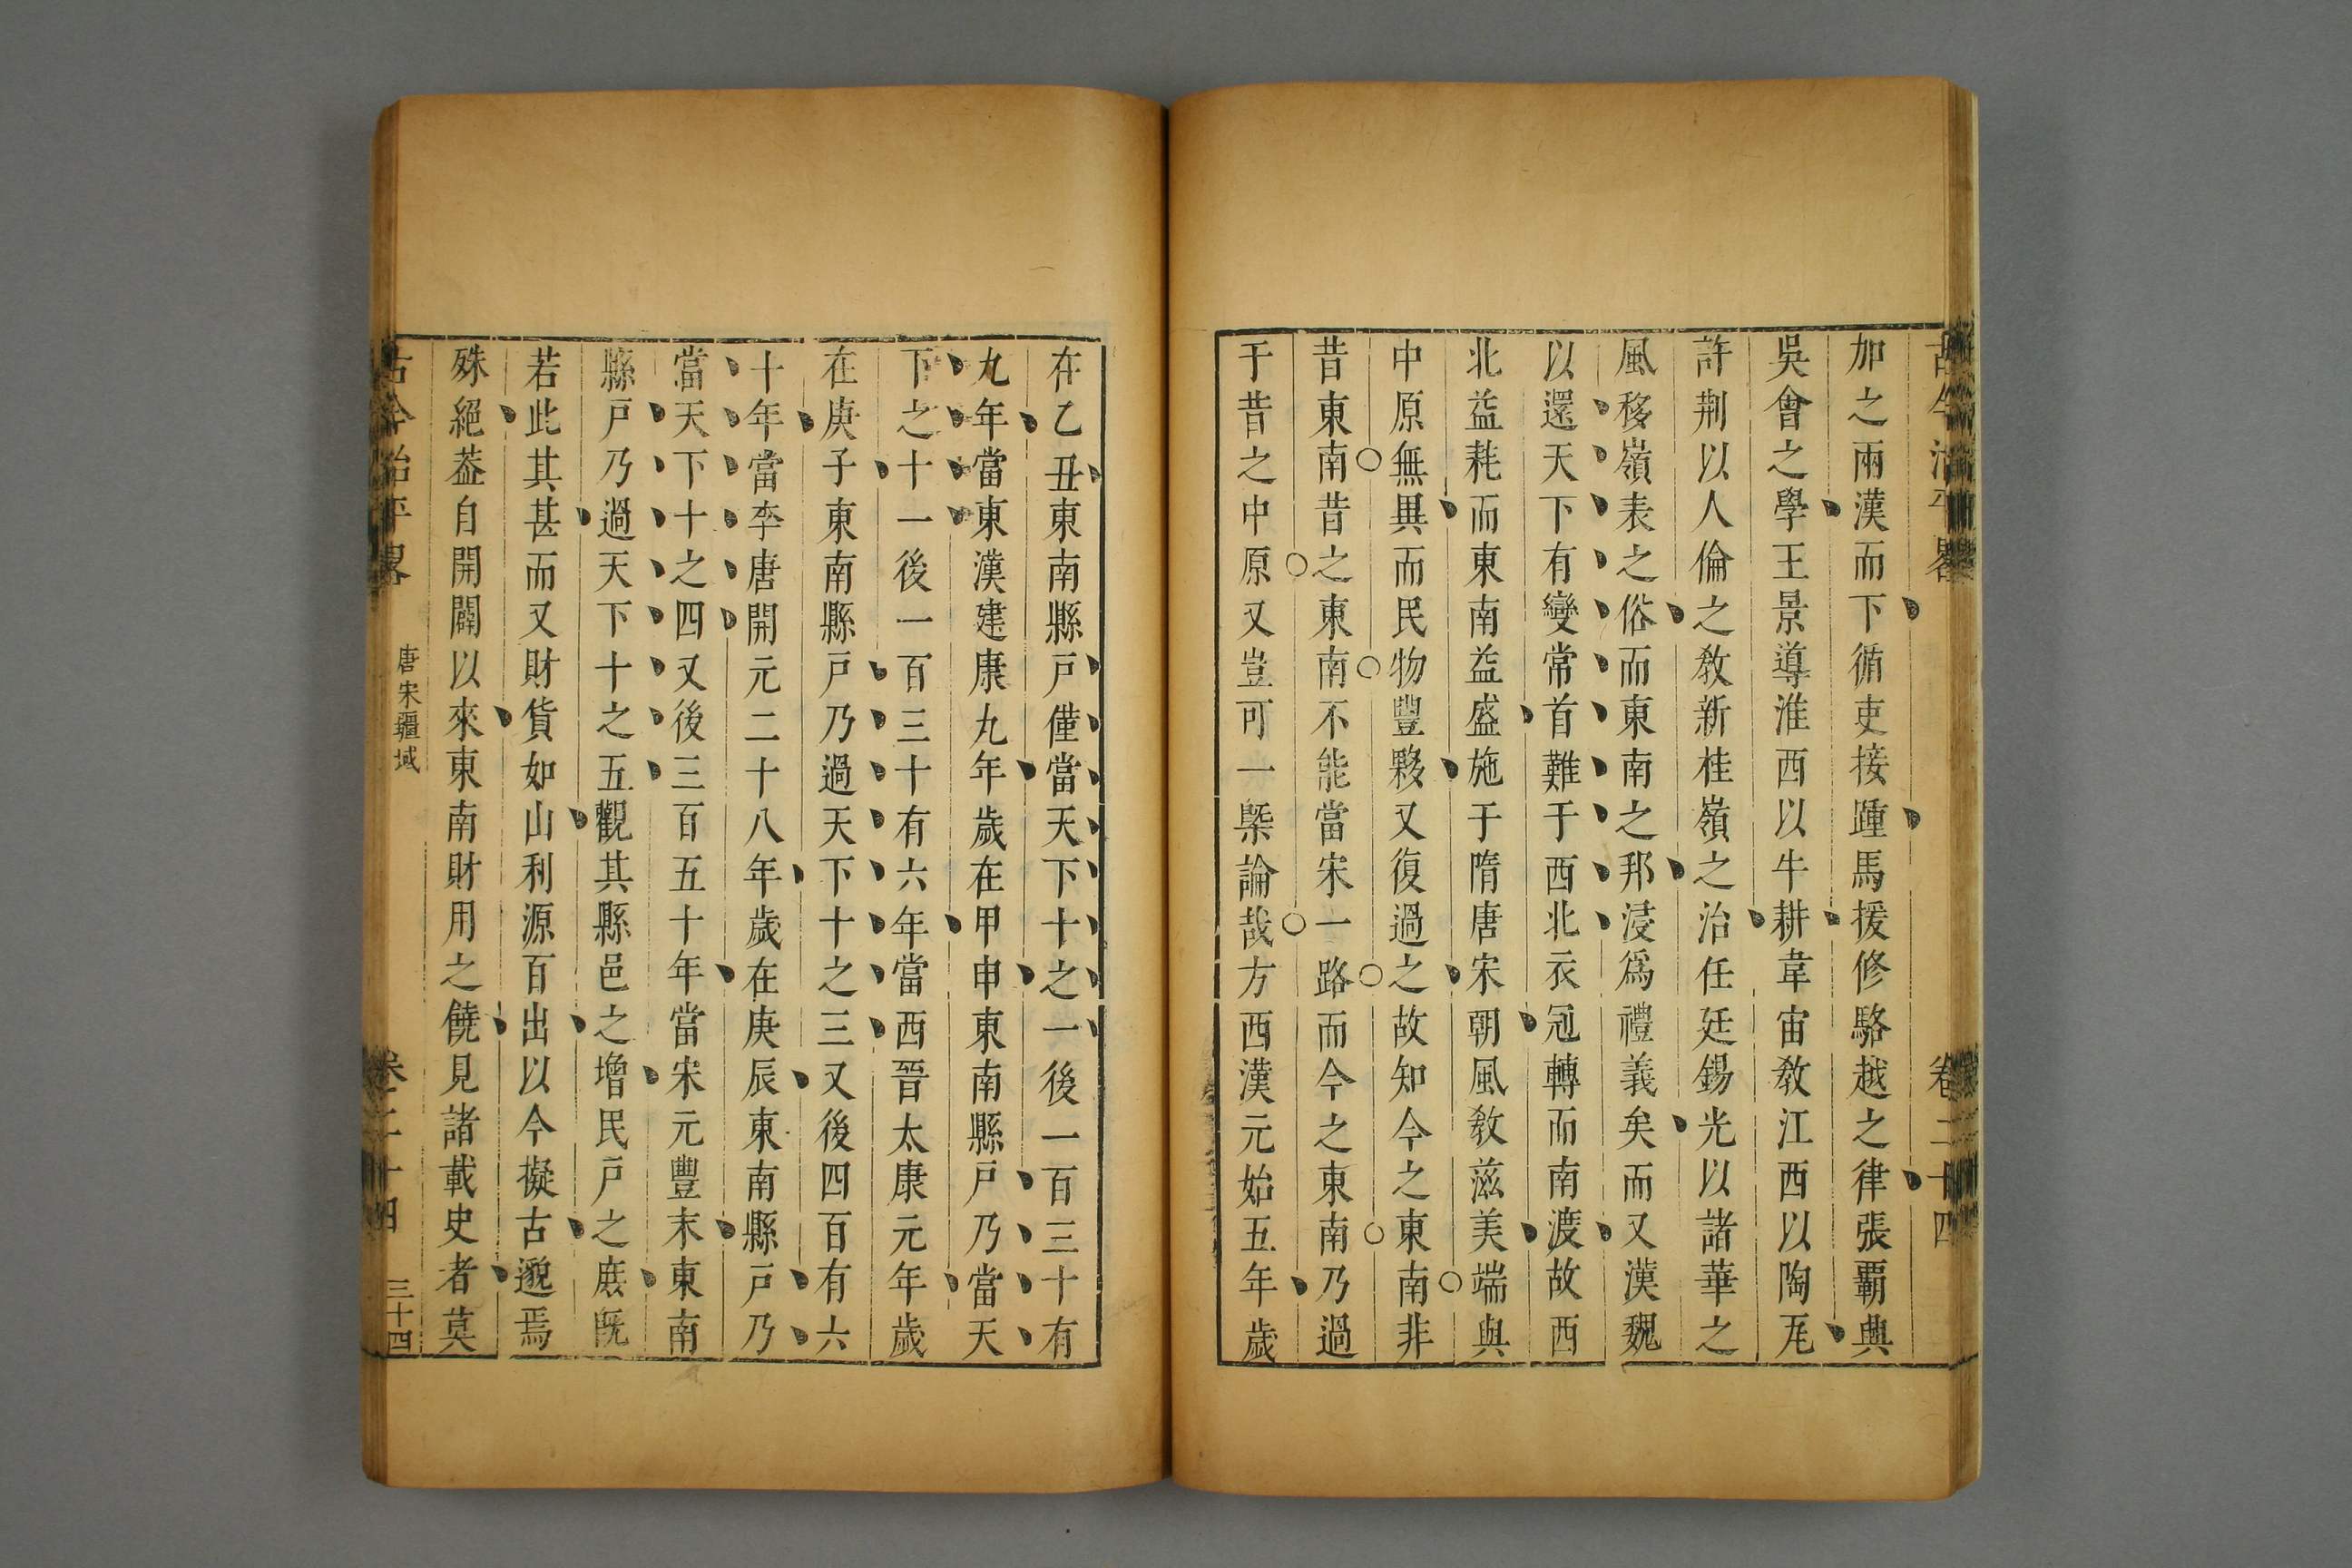 古今治平畧 卷二十四
加之兩漢而下循吏接踵馬援修駱越之律張霸典
吳會之學王景導淮西以牛耕韋宙敎江西以陶瓦
許荆以人倫之敎新桂嶺之治任廷錫光以諸華之
風移嶺表之俗而東南之邦浸爲禮義矣而又漢魏
以還天下有變常首難于西北衣冠轉而南渡故西
北益耗而東南益盛施于隋唐宋朝風敎滋美端與
中原無異而民物豐夥又復過之故知今之東南非
昔東南昔之東南不能當宋一路而今之東南乃過
于昔之中原又豈可一槩論哉方西漢元始五年歲
在乙丑東南縣戸僅當天下十之一後一百三十有
九年當東漢建康九年歲在甲申東南縣戸乃當天
下之十一後一百三十有六年當西晉太康元年歲
在庚子東南縣戸乃過天下十之三又後四百有六
十年當李唐開元二十八年歲在庚辰東南縣戸乃
當天下十之四又後三百五十年當宋元豐末東南
縣戸乃過天下十之五觀其縣邑之增民戸之庶旣
若此其甚而又財貨如山利源百出以今擬古邈焉
殊絕葢自開闢以來東南財用之饒見諸載史者莫
古今治平畧 唐宋疆域 卷二十四 三十四